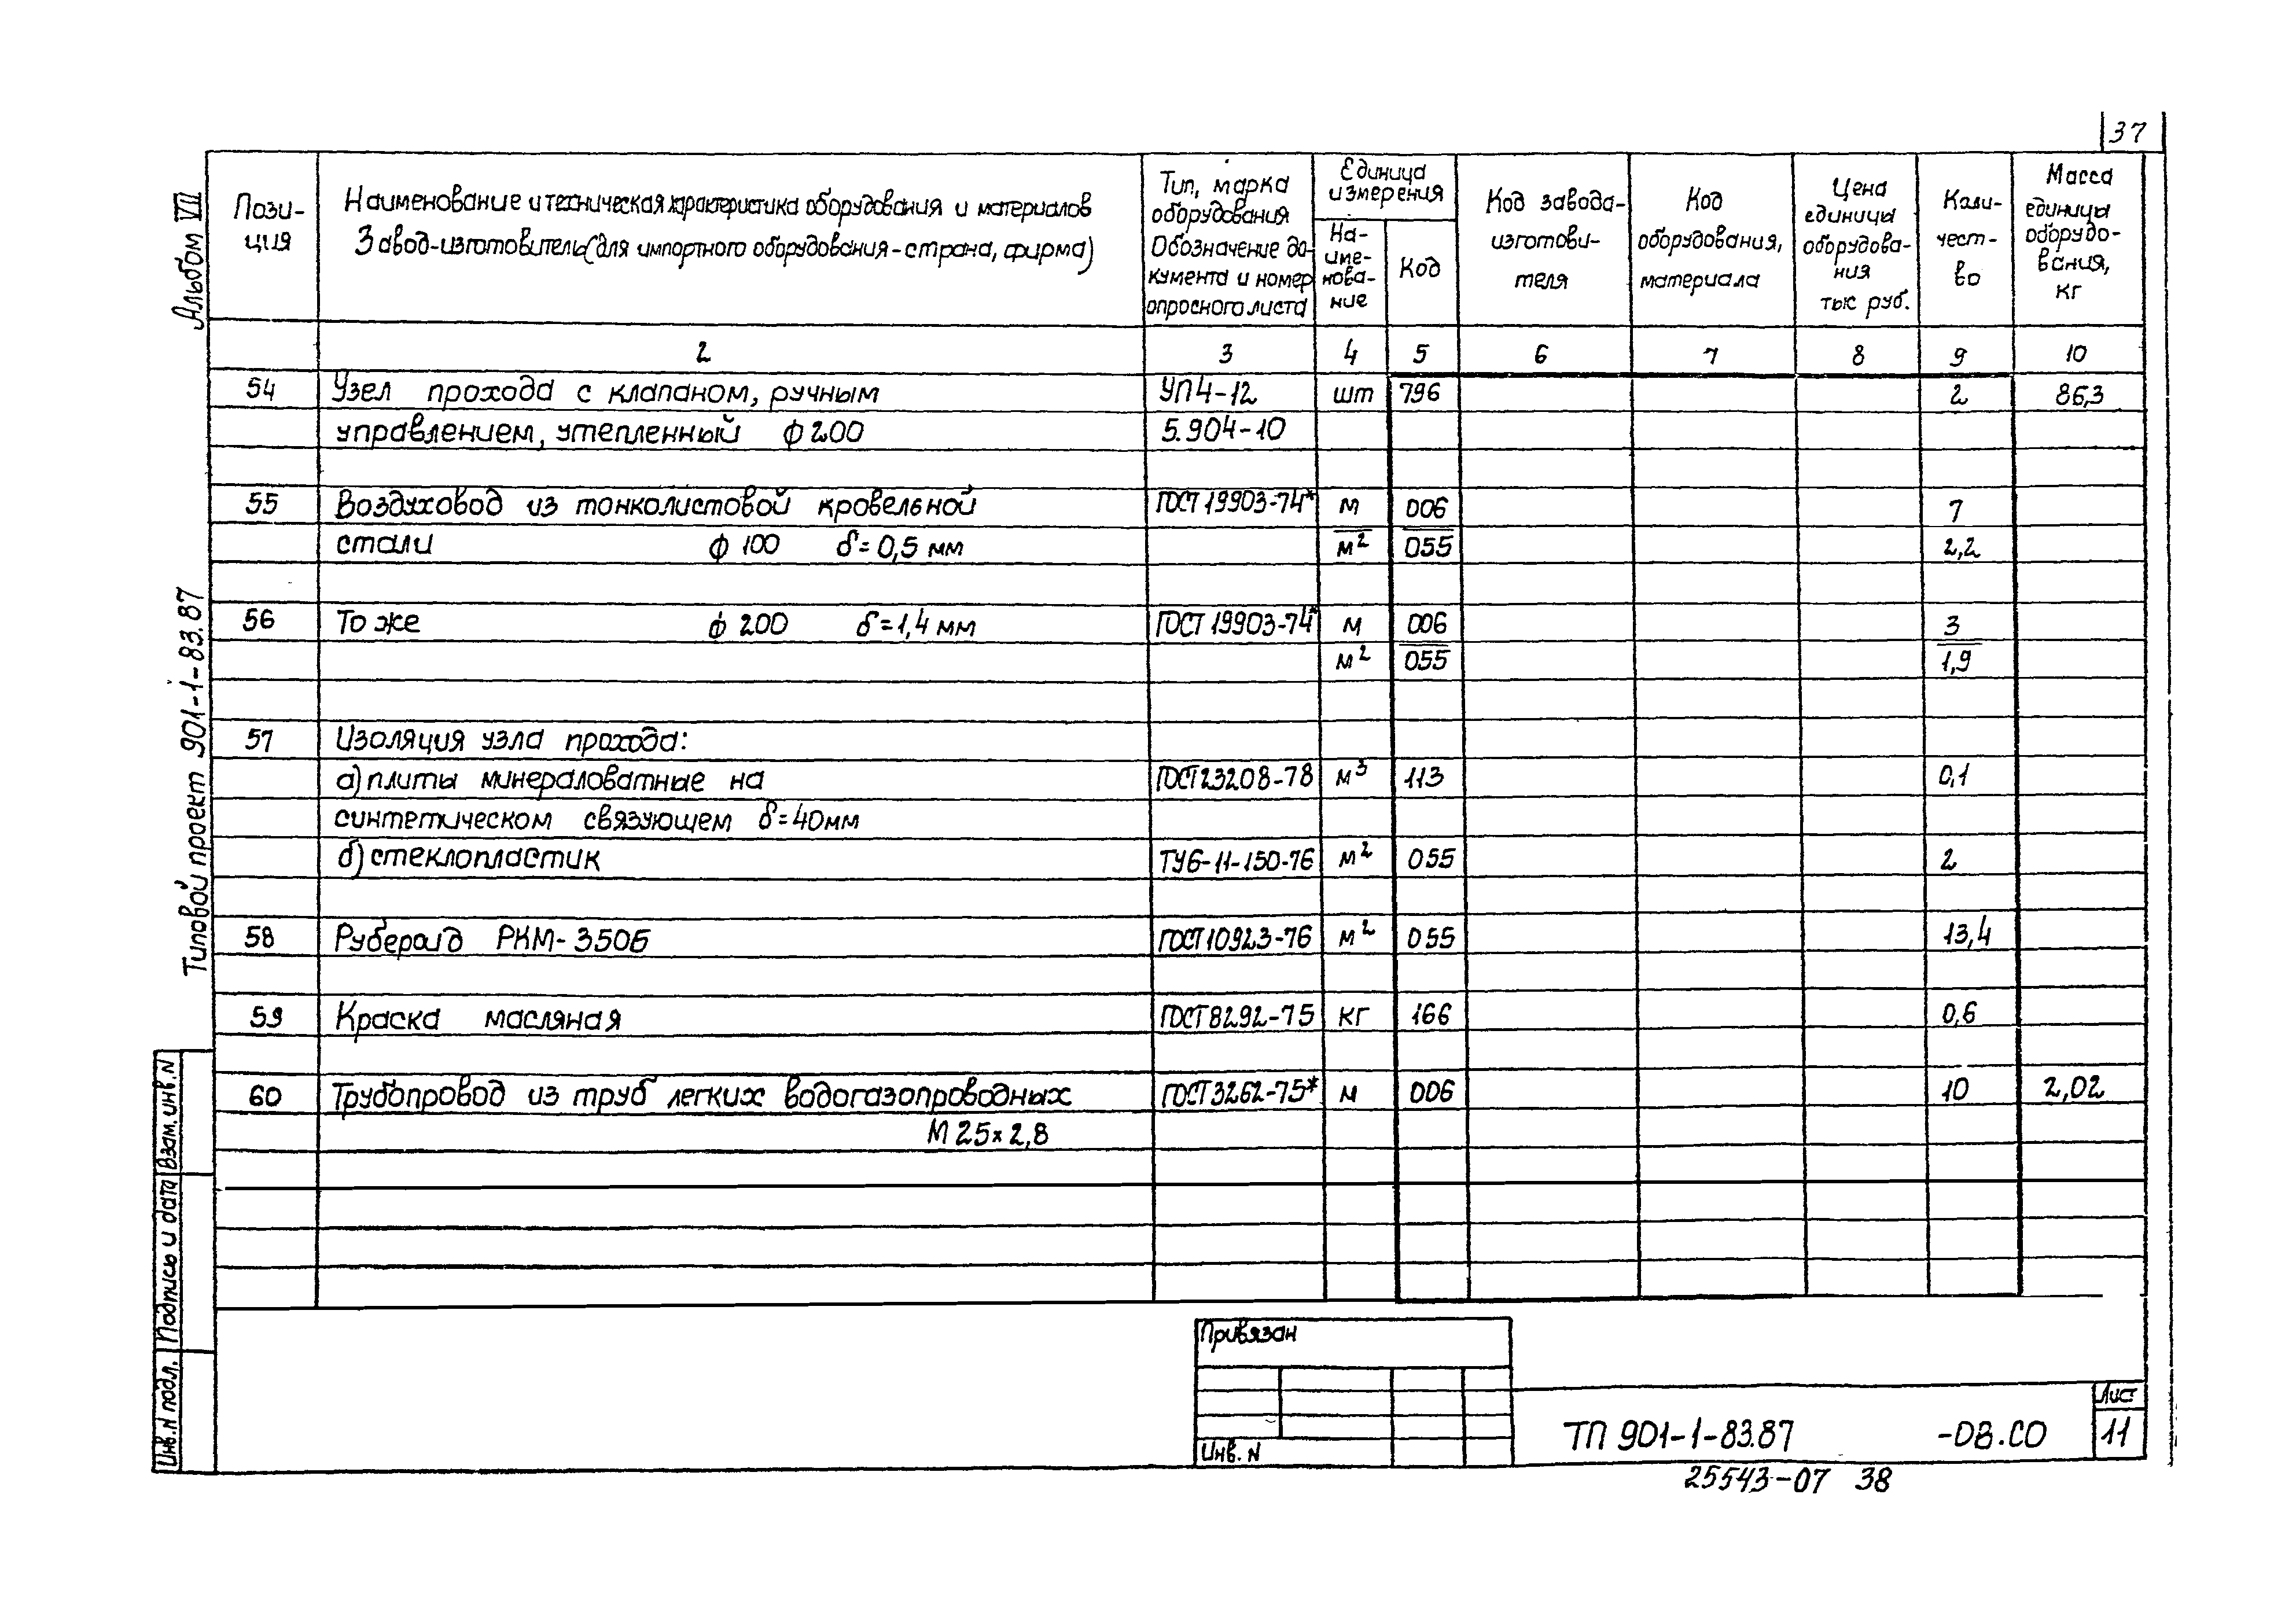 37
Альбом VII
Типовой проект 901-1-83.87
Пози-
ция
Наименование и техническая характеристика оборудования и материалов
Завод-изготовитель (для импортного оборудования - страна, фирма)
Тип, марка
оборудования
Обозначение до-
кумента и номер
опросного листа
Единица
измерения
На-
име-
нова-
ние
Код
Код завода-
изготови-
теля
Код
оборудования,
материала
Цена
единицы
оборудова-
ния
тыс руб.
Коли-
чест-
во
Масса
единицы
оборудо-
вания,
кг
2 3 4 5 6 7 8 9 10
54 Узел прохода с клапаном, ручным УП4-12 шт 796 2 86,3
управлением, утепленный ф 200 5.904-10
55 Воздуховод из тонколистовой кровельной ГОСТ 19903-74* м 006 7
стали ф 100 δ=0,5 мм м² 055 2,2
56 То же ф 200 δ=1,4 мм ГОСТ 19903-74* м 006 3
м² 055 1,9
57 Изоляция узла прохода:
а) плиты минераловатные на ГОСТ 23208-78 м³ 113 0,1
синтетическом связующем δ=40мм
б) стеклопластик ТУ6-11-150-76 м² 055 2
58 Рубероид РКМ-350Б ГОСТ 10923-76 м² 055 13,4
59 Краска масляная ГОСТ 8292-75 кг 166 0,6
60 Трубопровод из труб легких водогазопроводных ГОСТ 3262-75* м 006 10 2,02
М 25×2,8
Взам. инв. N
Подпись и дата
Инв. N подл.
Привязан
Инв. N
ТП 901-1-83.87 -ОВ.СО
Лист
11
25543-07 38